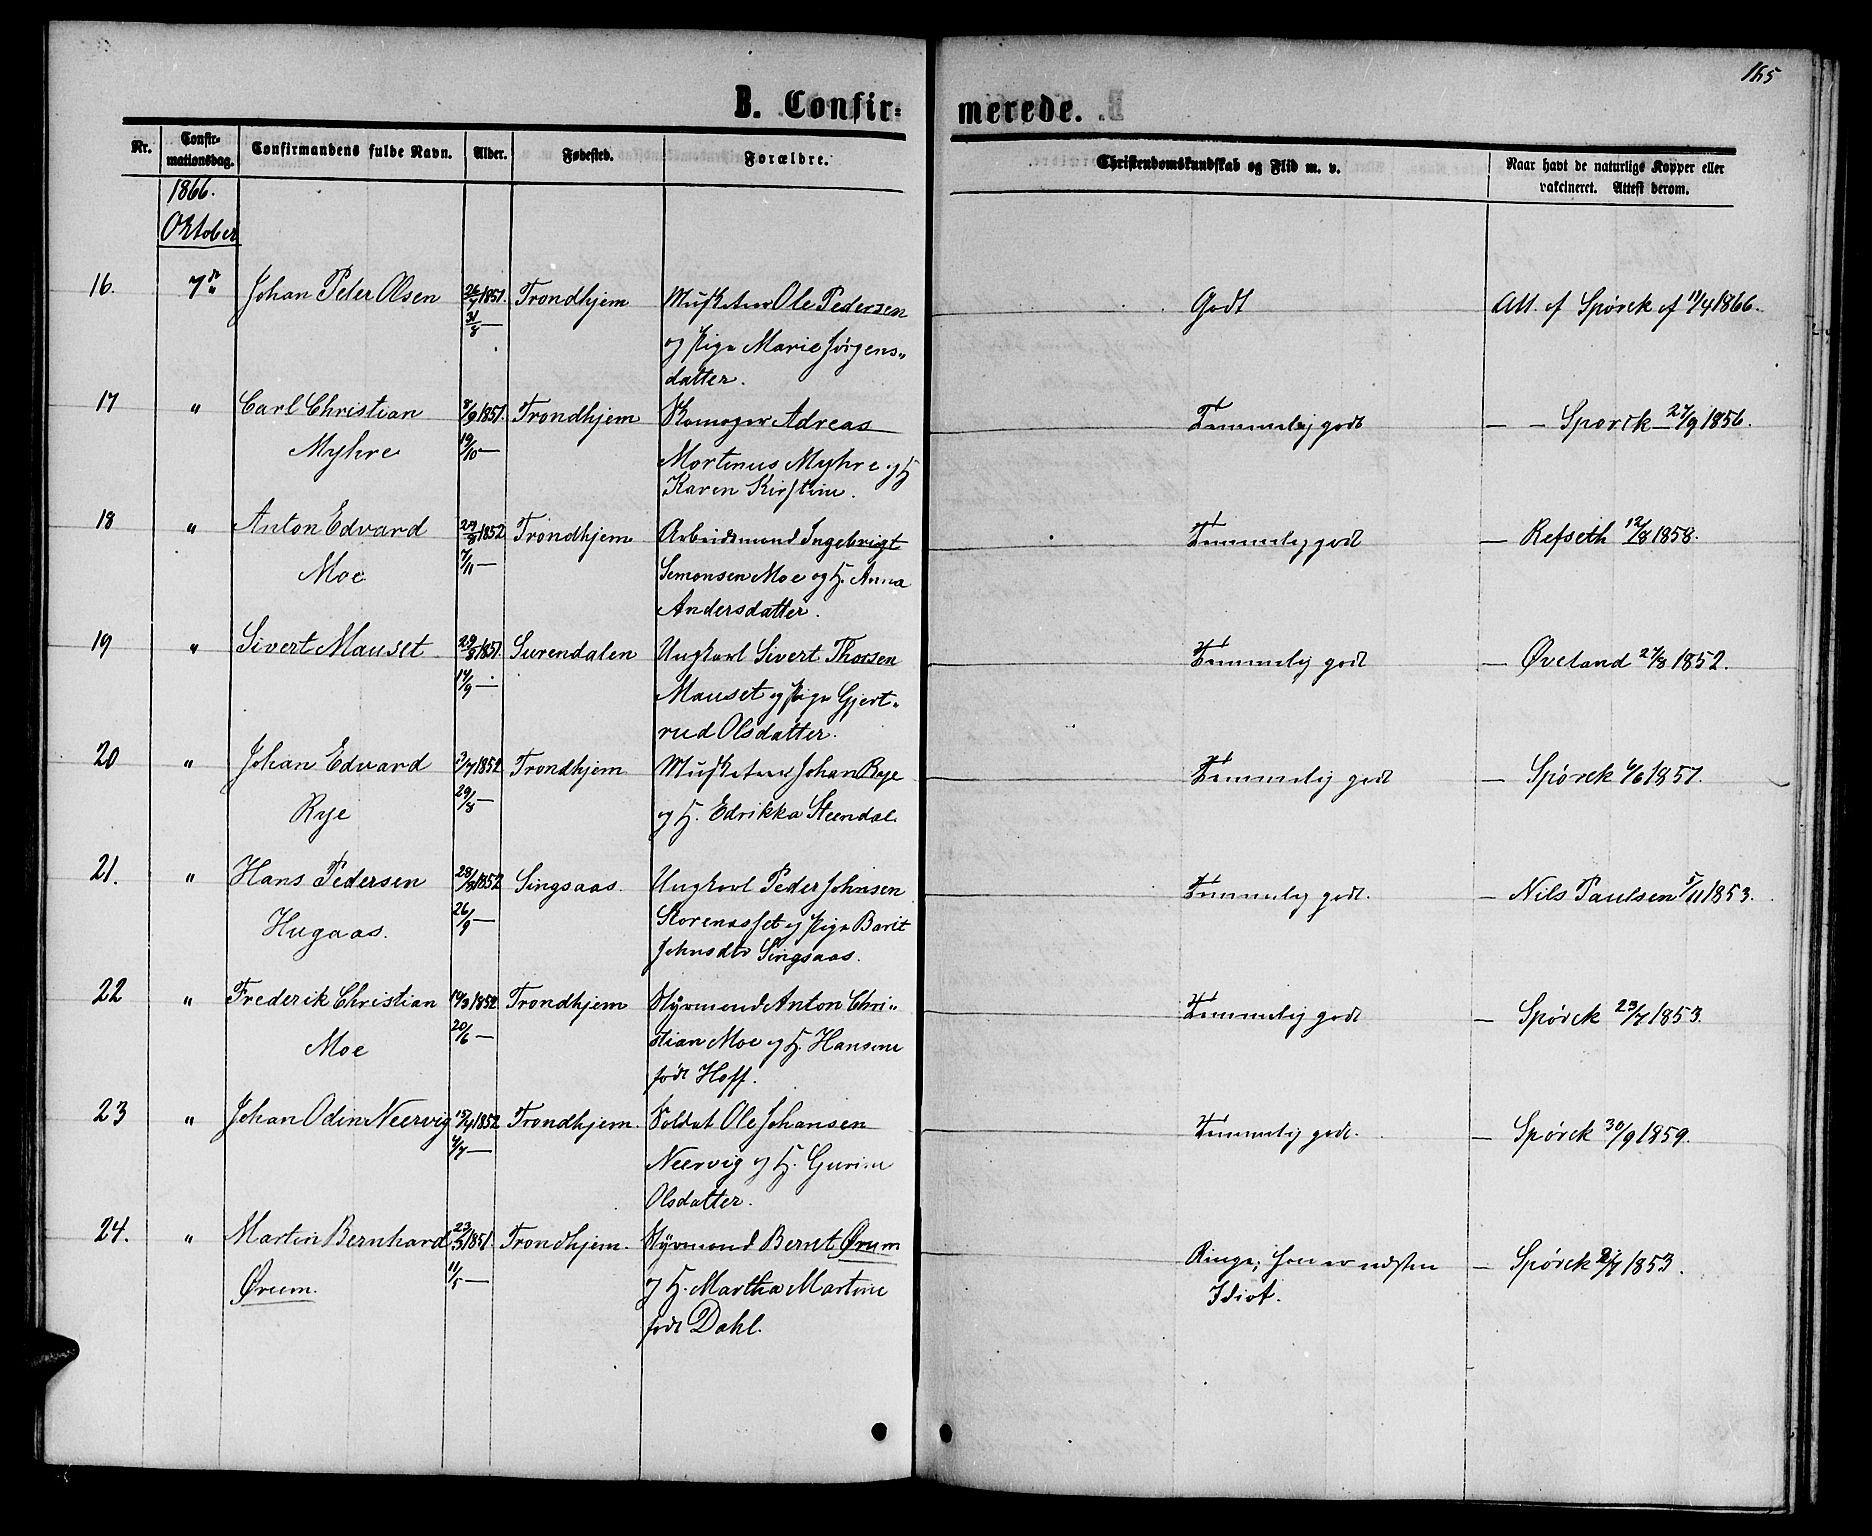 165
B. Confir-
merede.
Nr.
Confir-
mationsdag.
Confirmandens fulde Navn.
Alder.
Fødested.
Forældre.
Christendomskundskab og Flid m. v.
Naar havt de naturlige Kopper eller
vakcineret. Attest derom.
1866.
Oktober
16. 7de Johan Peter Olsen 26/7 1851. Trondhjem Musketeer Ole Pedersen Godt Att. af Spørck af 11/4 1866.
31/8 —
og Pige Marie Jørgens-
datter.
17 " Carl Christian 8/9 1851. Trondhjem Adreas Temmelig godt — — Spørck — 27/9 1856.
Myhre 19/10 — Mortinus Myhre og H
Karen Kirstine.
18 " Anton Edvard 29/8 1852 Trondhjem Arbeidsmand Ingebrigt Temmelig godt — Refseth 12/8 1858.
Moe 7/11 — Semonsen Moe og H. Anna
Andersdatter.
19 " Sivert Mauset 29/8 1851. Surendalen Ungkarl Sivert Thorsen Temmelig godt — Øveland 27/8 1852.
14/9 — Mauset og Pige Gjert-
rud Olsdatter.
20 " Johan Edvard 3/7 1852 Trondhjem Musketeer Johan Rye Temmelig godt — Spørck 6/6 1857.
Rye 29/8 — og H. Edrikka Steendal
21. " Hans Pedersen 28/8 1852 Singsaas. Ungkarl Peder Johnsen Temmelig godt. — Nils Paulsen 5/11 1853.
Hugaas. 26/9 — Storenasset og Pige Barit
Johnsdtr Singsaas.
22 " Frederik Christian 14/3 1852 Trondhjem Styrmand Anton Chri- Temmelig godt — Spørck 23/7 1853.
Moe 20/6 — stian Moe og H. Hansine
født Hoff.
23 " Johan Odin Neervig 15/4 1852 Trondhjem. Soldat Ole Johansen Temmelig godt. — Spørck 30/9 1859.
4/7 — Neervig og H. Gurine
Olsdatter.
24. " Martin Bernhard 23/3 1851. Trondhjem. Styrmand Bernt Ørum Ringe; han er næsten — Spørck 1853.
Ørum. 11/5 — og H. Martha Martine Idiot.
født Dahl.